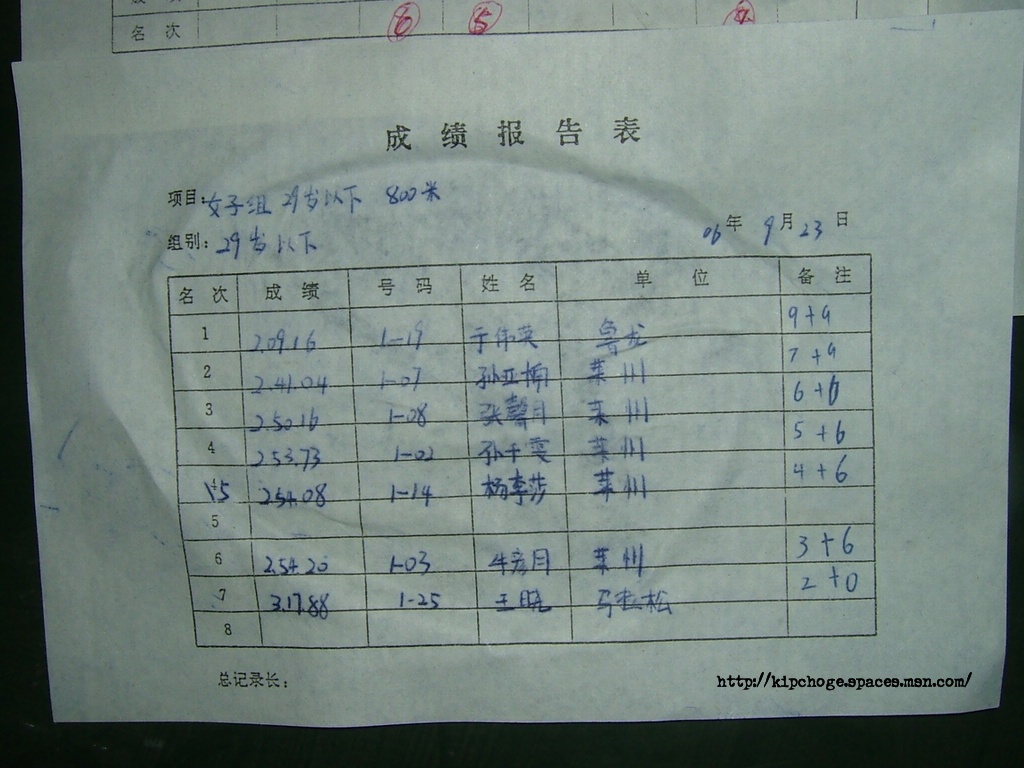 名 次 6 5
成 绩 报 告 表
项目: 女子组 29岁以下 800米
组别: 29岁以下 06年 9月23日
名 次 成 绩 号 码 姓 名 单 位 备 注
1 2.09.16 1-19 于伟英 鲁龙 9+9
2 2.41.04 1-07 孙亚楠 莱州 7+9
3 2.50.16 1-08 张馨月 莱州 6+6
4 2.53.73 1-02 孙千雯 莱州 5+6
5 2.54.08 1-14 杨李莎 莱州 4+6
5
6 2.54.20 1-03 牛彦月 莱州 3+6
7 3.17.88 1-25 王晓 马拉松 2+0
8
总记录长:
http://kipchoge.spaces.msn.com/